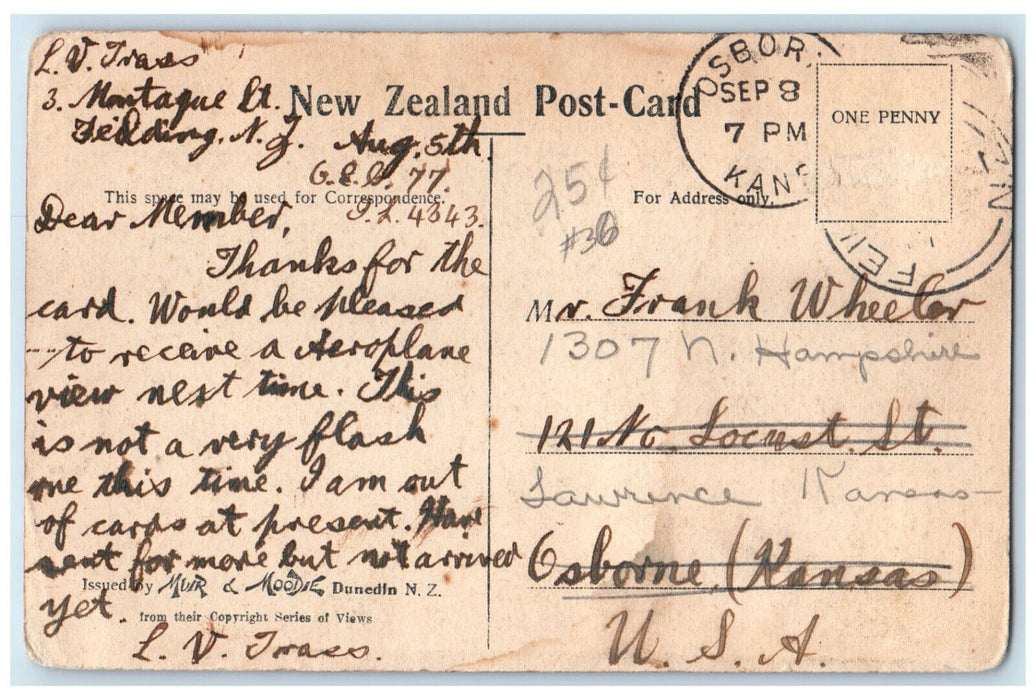 L. V. Trass
3. Montague St.
Feilding, N. Z. Aug. 5th.
New Zealand Post-Card
C.E.C. 77.
I.L. 4343.
This space may be used for Correspondence.
Dear Member,
Thanks for the
card. Would be pleased
to receive a Aeroplane
view next time. This
is not a very flash
one this time. I am out
of cards at present. Have
sent for more but not arrived
yet.
L. V. Trass.
Issued by MUIR & MOODIE Dunedin N. Z.
from their Copyright Series of Views
25¢
#36
For Address only.
OSBOR
SEP 8
7 PM
KANS
ONE PENNY
FEI
N.Z.
Mr. Frank Wheeler
1307 N. Hampshire
121 No. Locust. St.
Lawrence Kansas-
Osborne (Kansas)
U. S. A.